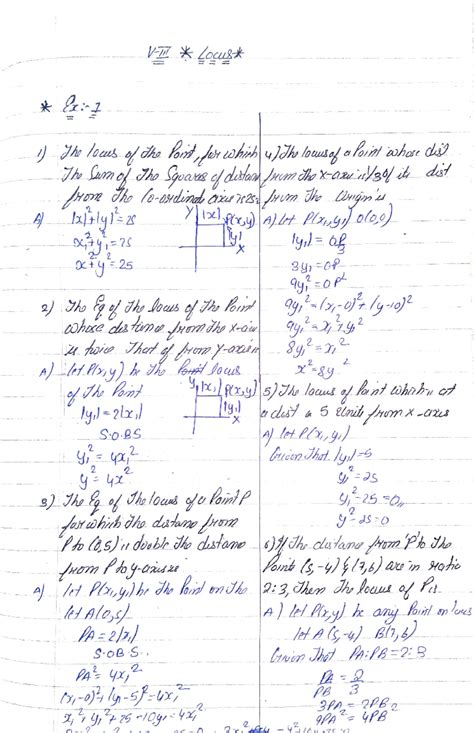 V-III * Locus *
* Ex:- 1
1) The locus of the Point, for which
The Sum of The Squares of distance
from The Co-ordinate axes is 25
A) |x|²+|y|²=25
x₁²+y₁²=25
x²+y²=25
Y |x| P(x,y)
|y|
X
2) The Eq of The locus of The Point
whose distance from the x-axis
is twice That of from y-axis is
A) let P(x,y) be the Point locus
of The Point
|y₁|=2|x₁|
S.O.B.S
y₁²=4x₁²
y²=4x²
y |x₁| P(x,y)
|y₁|
X
3) The Eq of The locus of a Point P
for which The distance from
P to (0,5) is double The distance
from P to y-axis is
A) let P(x,y) be The Point on The
let A(0,5)
PA=2|x₁|
S.O.B.S.
PA²=4x₁²
(x₁-0)²+(y₁-5)²=4x₁²
x₁²+y₁²+25-10y₁=4x₁²
4) The locus of a Point whose dist
from The x-axis is 1/3 of its dist
from the origin is
A) let P(x₁,y₁) O(0,0)
|y₁|=OP/3
3y₁=OP
9y₁²=OP²
9y₁²=(x₁-0)²+(y-10)²
9y₁²=x₁²+y₁²
8y₁²=x₁²
x²=8y²
5) The locus of Point which is at
a dist is 5 Units from x-axis
A) let P(x₁,y₁)
Given That |y₁|=5
y₁²=25
y₁²-25=0
y²-25=0
6) If The distance from 'P' to The
Points (5,-4) & (7,6) are in ratio
2:3, Then The locus of P is
A) let P(x,y) be any Point on locus
let A(5,-4) B(7,6)
Given That PA:PB=2:3
PA/PB=2/3
3PA=2PB
9PA²=4PB²